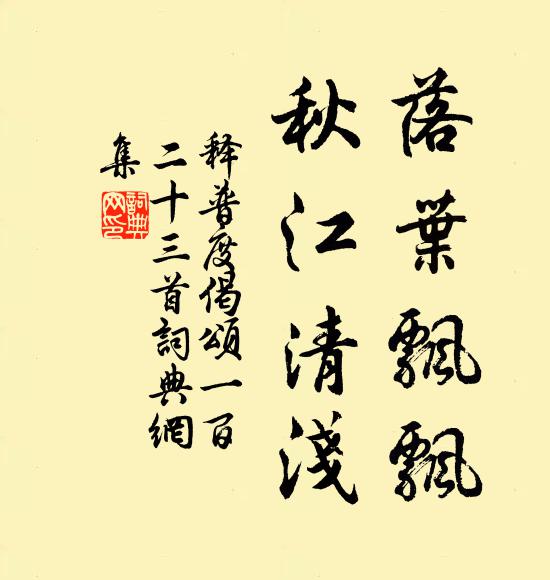 落葉飄飄
秋江清淺
释普度偈頌一百
二十三首詞典網
集
詞典
网印